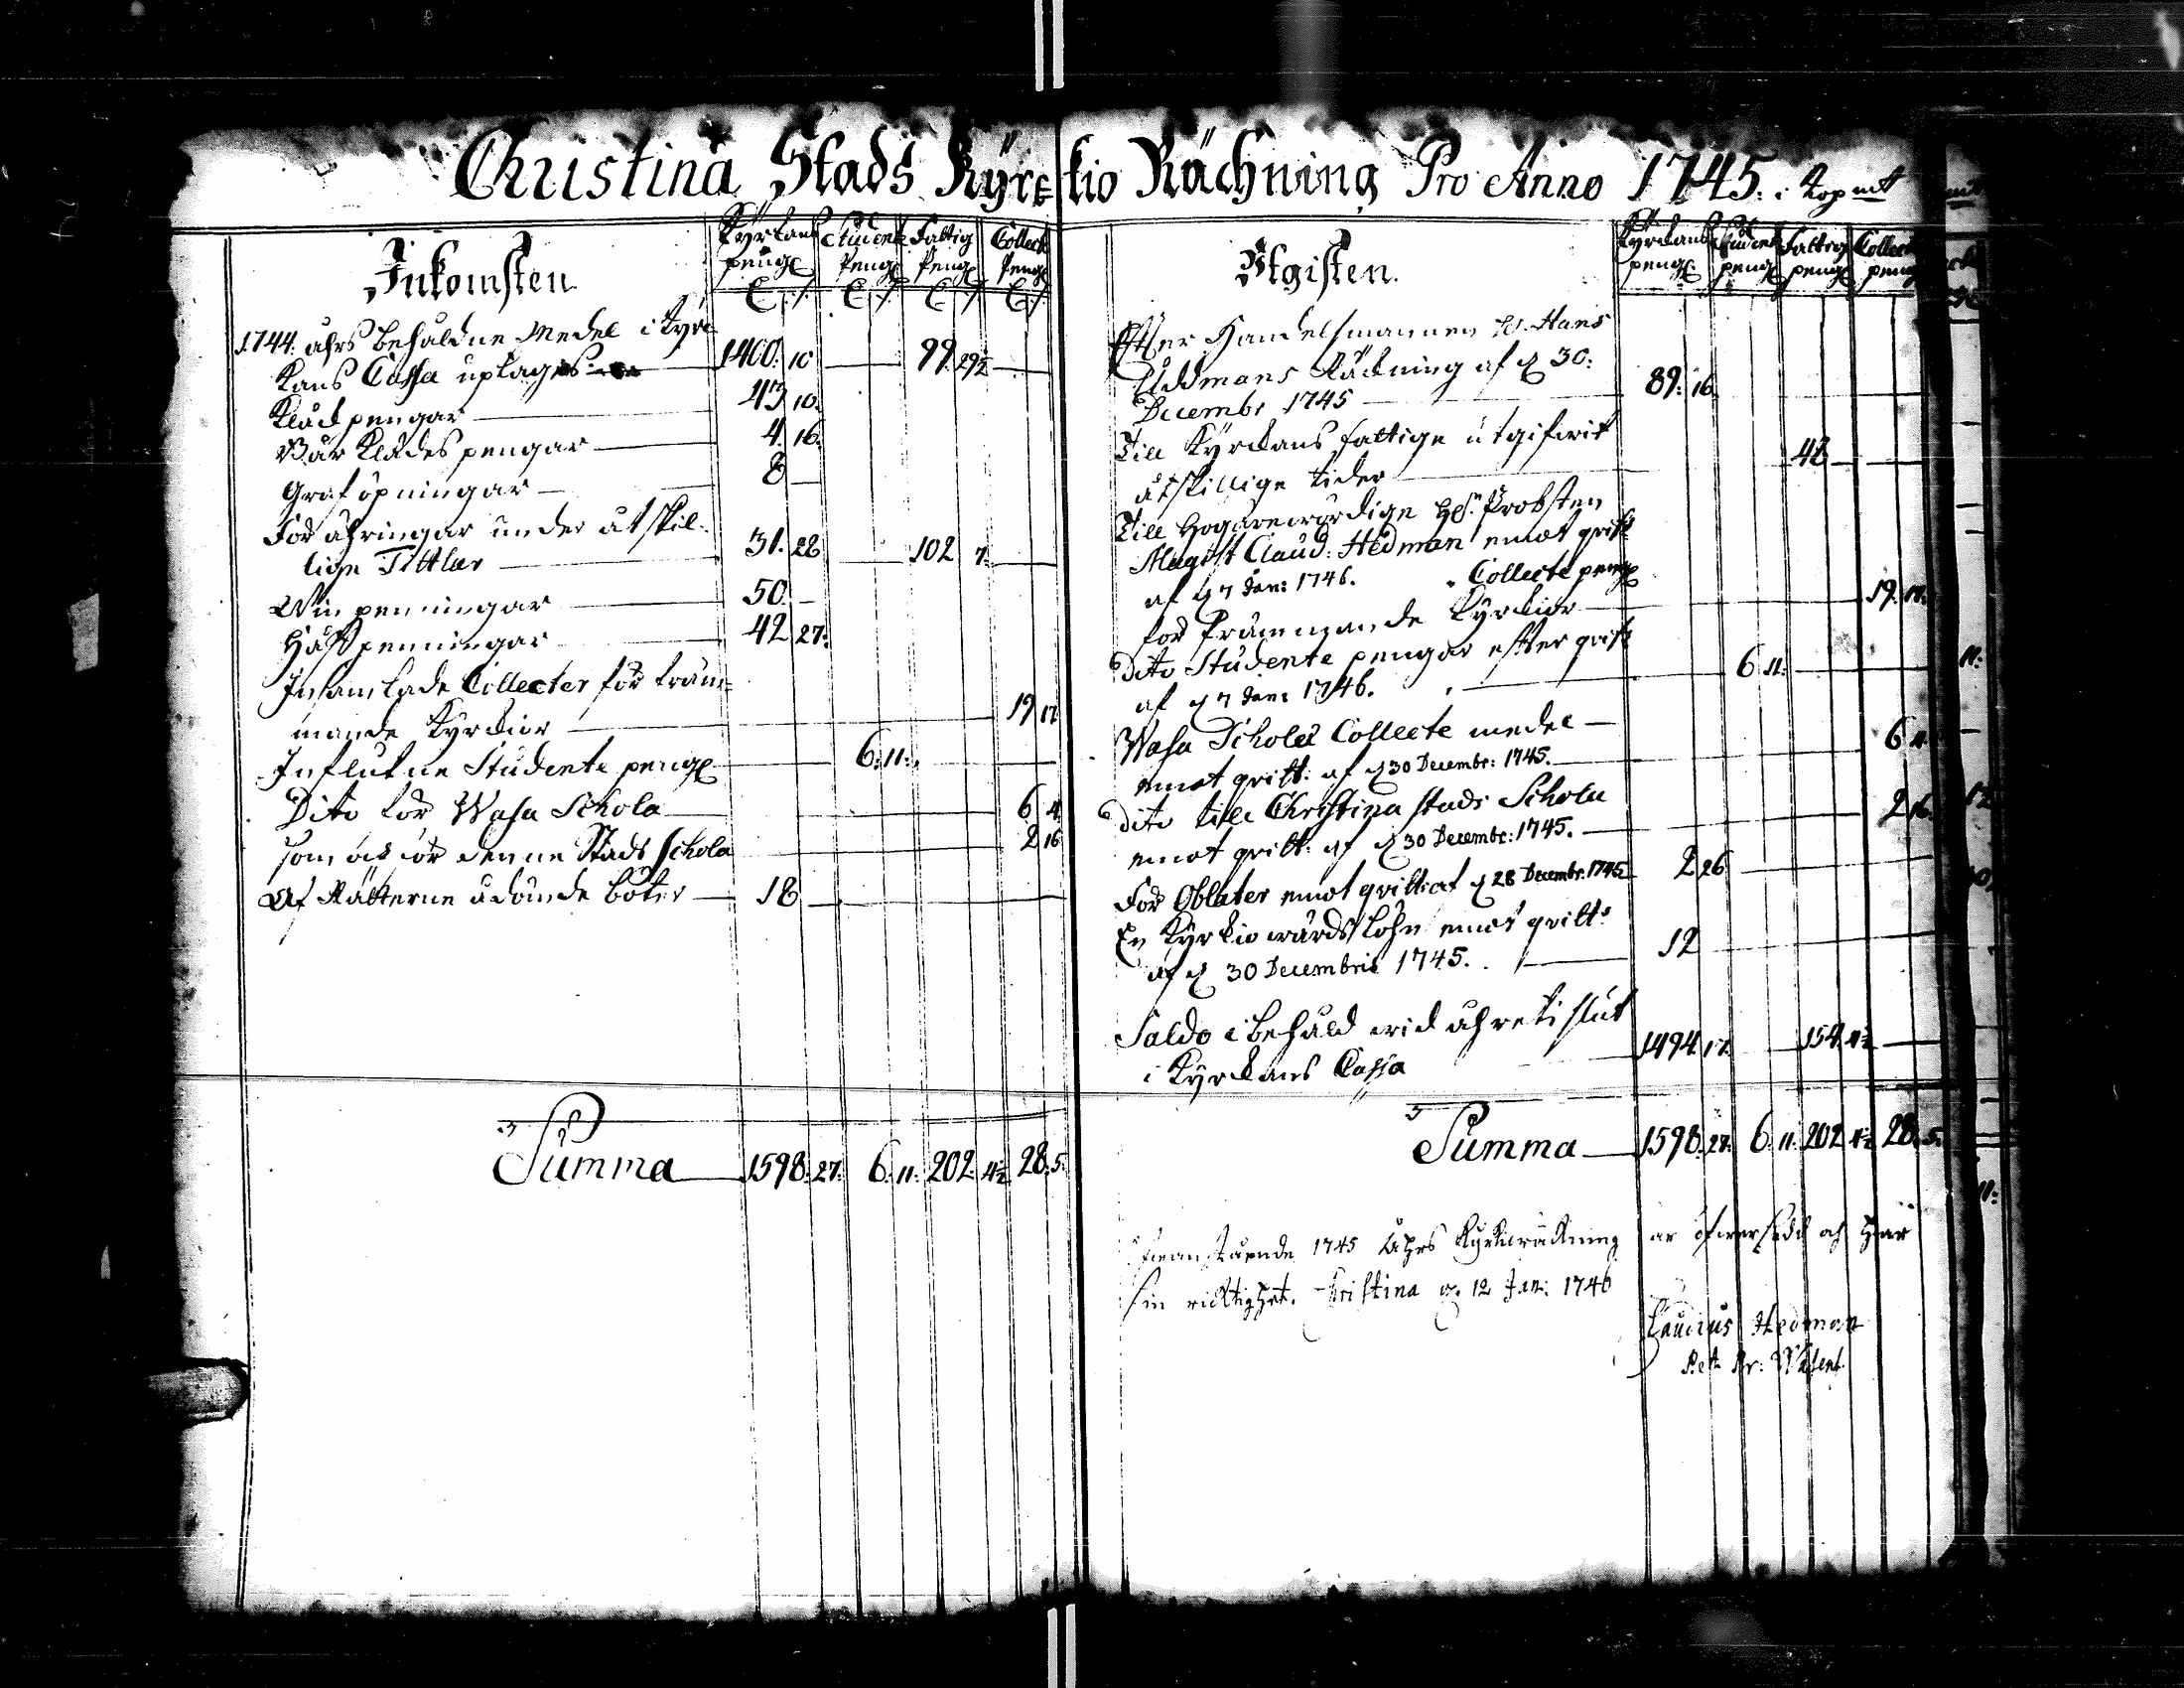 Christina Stads Kyrckio Rächning Pro Anno 1745. i Kop mt
Inkomsten
Kyrkans peng Student Peng Fattig Peng Collect Peng
1744. ahrs behåldne Medel i Kyr-
kans Cassa uptages 1400. 10 — 99. 29½ —
Klåckpengar — 43 10.
Bårklädes pengar — 4. 16.
Graföpningar — 8 —
För ahringar under åtskil-
lige Tittlar — 31. 28 — 102 7. —
Winpenningar — 50. —
Håfpenningar — 42 27.
Insamlade Collecter för främ-
mande Kyrckior — 19 17
Influtne Studente peng — 6. 11.
Dito för Wasa Schola — 6 4.
som ock för denne Stads Schola — 2 16
Af Rätterne ådömde böter — 18 —
Summa — 1598. 27. 6. 11. 202. 4½ 28. 5.
Utgiften.
Kyrckans peng. Student peng Fattig peng Collect peng
Efter Handelsmannen H. Hans
Uddmans Räckning af d 30.
Decembr 1745 — 89. 16.
Till Kyrckans fattige utgifwit
åtskillige tider — 48 —
Till Högärewördige H. Probsten
Magist Claud. Hedman emot qvitt
af d 7 Jan: 1746. Collecte peng
för främmande Kyrckior — 19. 17.
Dito Studente pengar efter qvitt
af d 7 Jan: 1746. — 6 11.
Wasa Scholæ Collecte medel —
emot qvitt: af d 30 Decembr: 1745. — 6 4.
Dito till Christina stads Schola
emot qvitt: af d 30 Decembr: 1745. — 2 16.
För Oblater emot qvitt: af d 28 Decembr. 1745 2 26
En Kyrkiowärds löhn emot qvitt:
af d 30 Decembris 1745. — 12
Saldo i behåld wid åhretz slut
i Kyrckans Cassa 1494. 17. — 154. 4½ —
Summa — 1598. 27. 6. 11. 202 4½ 28. 5.
Framstående 1745 Åhrs Kyrkioräckning är öfwersedd och har
sin richtighet. Christina d. 12 Jan: 1746
Claudius Hedman